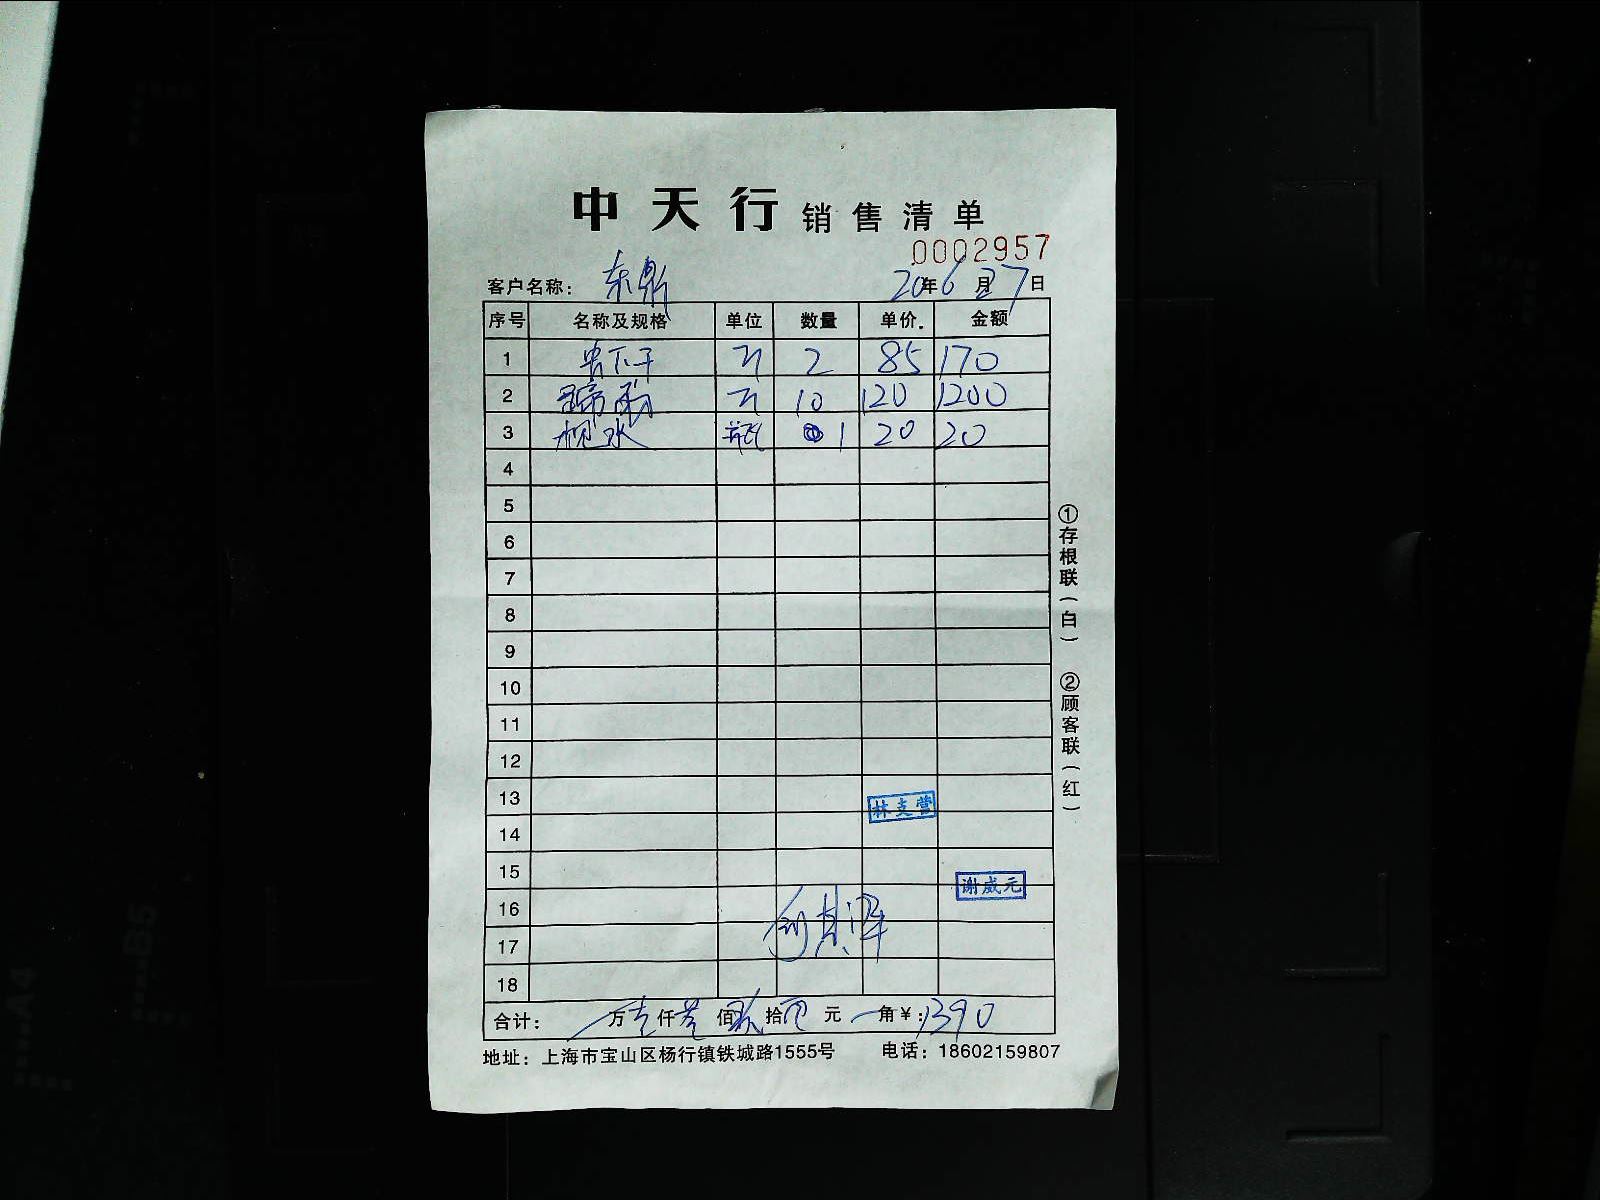 中天行销售清单
0002957
客户名称：东鼎 20年6月27日
序号 名称及规格 单位 数量 单价 金额
1 斤 2 85 170
2 斤 10 120 1200
3 枧水 瓶 1 20 20
4
5
6
7
8
9
10
11
12
13
林支营
14
15
谢威元
16
17
18
合计： 万壹仟叁佰玖拾 元 角￥：1390
地址：上海市宝山区杨行镇铁城路1555号 电话：18602159807
①存根联（白） ②顾客联（红）